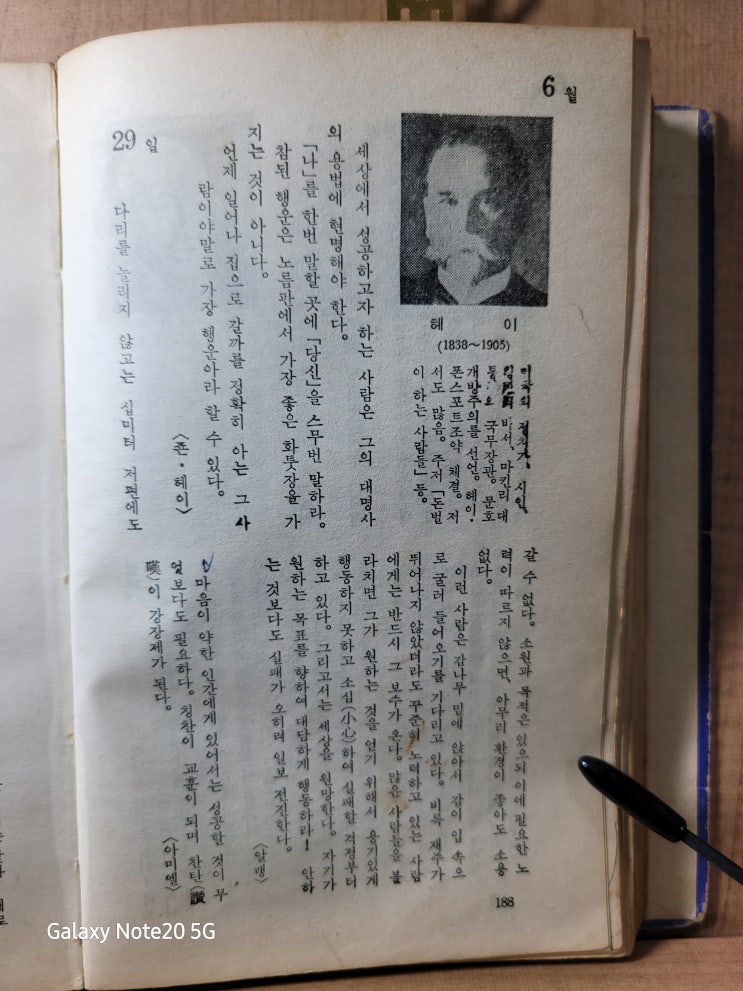 6 월
29 일
헤 이
(1838〜1905)
미국의 정치가, 시인,
비서, 마킨리 대
국무장관. 문호
개방주의를 선언. 헤이·
폰스포트조약 체결. 저
서도 많음. 주저 「돈벌
이 하는 사람들」 등.
세상에서 성공하고자 하는 사람은 그의 대명사
의 용법에 현명해야 한다.
「나」를 한번 말할 곳에 「당신」을 스무번 말하라.
참된 행운은 노름판에서 가장 좋은 화툿장을 가
지는 것이 아니다.
언제 일어나 집으로 갈까를 정확히 아는 그 사
람이야말로 가장 행운아라 할 수 있다.
〈죤·헤이〉
다리를 놀리지 않고는 십미터 저편에도
갈 수 없다. 소원과 목적은 있으되 이에 필요한 노
력이 따르지 않으면, 아무리 환경이 좋아도 소용
없다.
이런 사람은 감나무 밑에 앉아서 감이 입 속으
로 굴러 들어오기를 기다리고 있다. 비록 재주가
뛰어나지 않았더라도 꾸준히 노력하고 있는 사람
에게는 반드시 그 보수가 온다. 많은 사람들을 볼
라치면 그가 원하는 것을 얻기 위해서 용기있게
행동하지 못하고 소심(小心)하여 실패한 걱정부터
하고 있다. 그리고서는 세상을 원망한다. 자기가
원하는 목표를 향하여 대담하게 행동하라! 안하
는 것보다도 실패가 오히려 일보 전진한다.
〈알랭〉
마음이 약한 인간에게 있어서는 성공할 것이 무
엇보다도 필요하다. 칭찬이 교훈이 되며 찬탄(讚
嘆)이 강장제가 된다.
〈아미엘〉
188
Galaxy Note20 5G